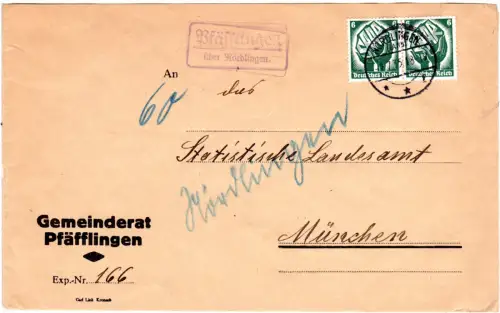 Pfäfflingen
über Nördlingen.
6 6
Deutsches Reich Deutsches Reich
An
60
das
Statistische Landesamt
Nördlingen
München
Gemeinderat
Pfäfflingen
Exp.-Nr. 166